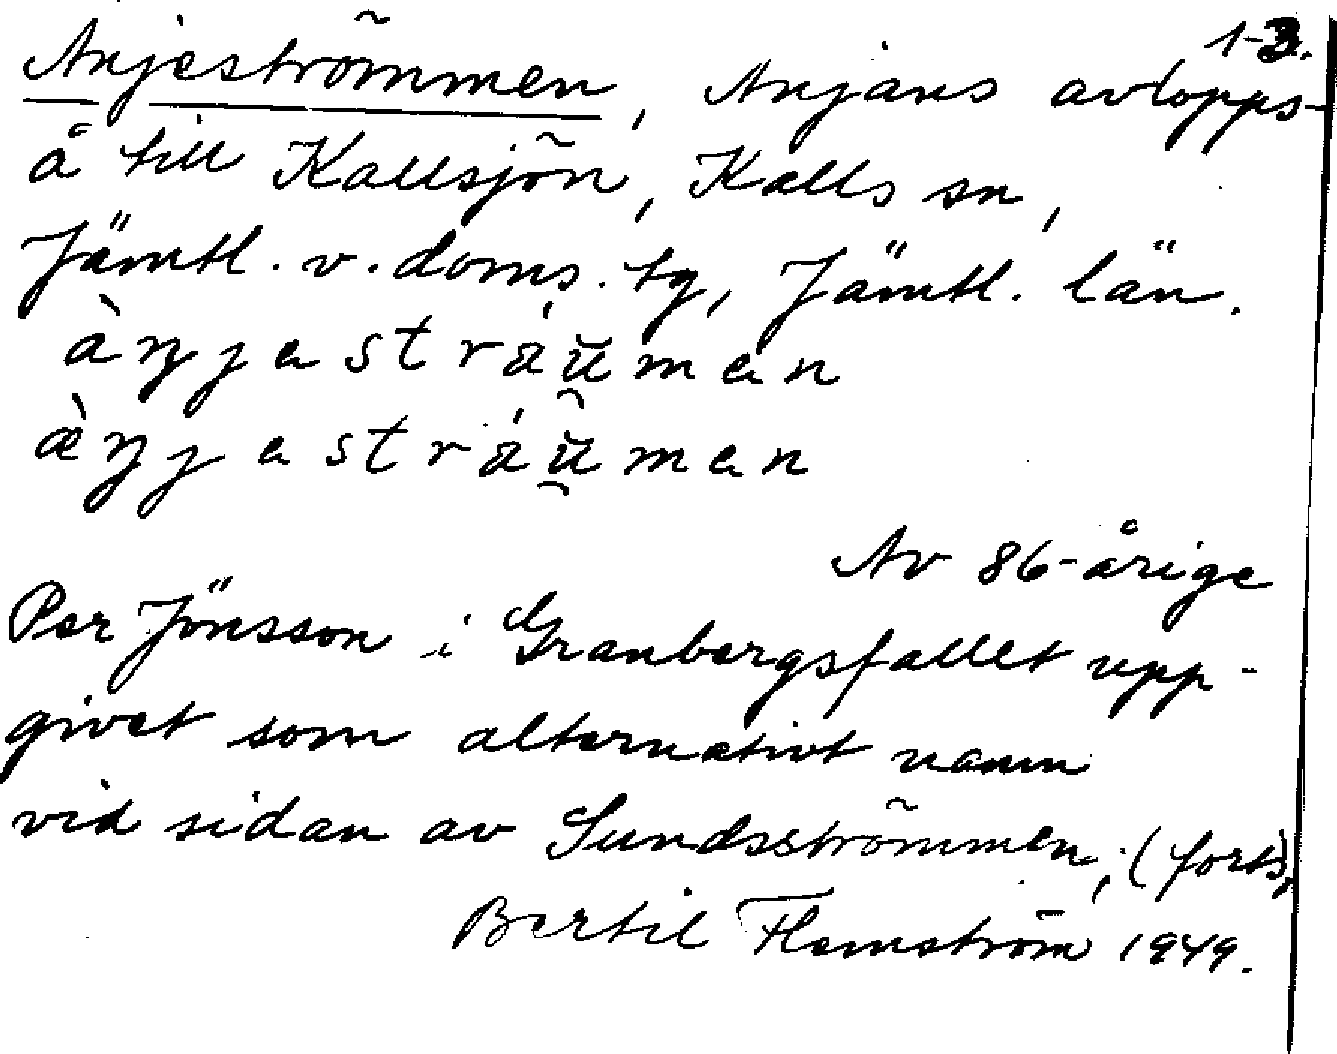 1-3.
Anjeströmmen, Anjans avlopps-
å till Kallsjön, Kalls sn,
Jämtl. v. doms. tg, Jämtl. län.
àŋjestráu̯men
æ̀ŋjestráu̯men
Av 86-årige
Per Jönsson i Granbergsfallet upp-
givet som alternativt namn
vid sidan av Sundsströmmen, (forts),
Bertil Flemström 1949.